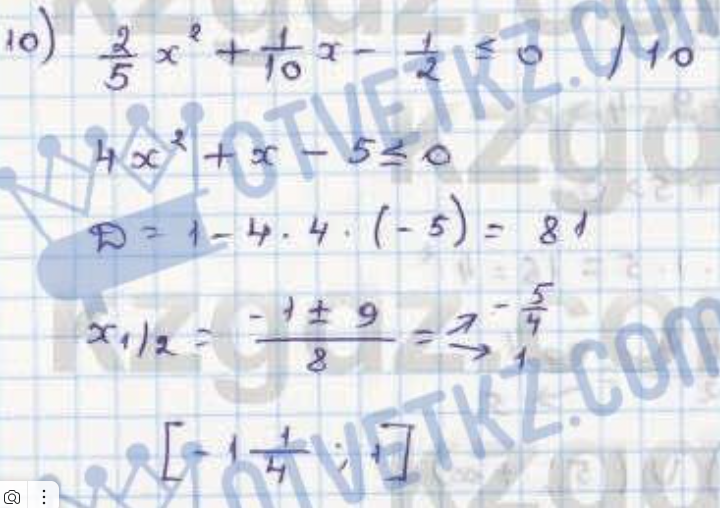 10) 2/5 x² + 1/10 x - 1/2 ≤ 0 / 10
4x² + x - 5 ≤ 0
D = 1 - 4 · 4 · (-5) = 81
x₁/₂ = (-1 ± 9)/8 = ↗ -5/4 → 1
[-1 1/4 ; 1]
OTVETKZ.COM
kzgdz.com
OTVETKZ.COM